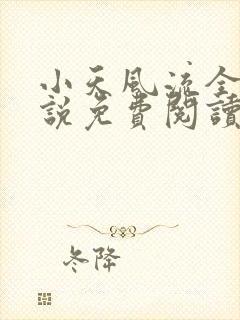 小天風流全
說免費閱讀
冬降